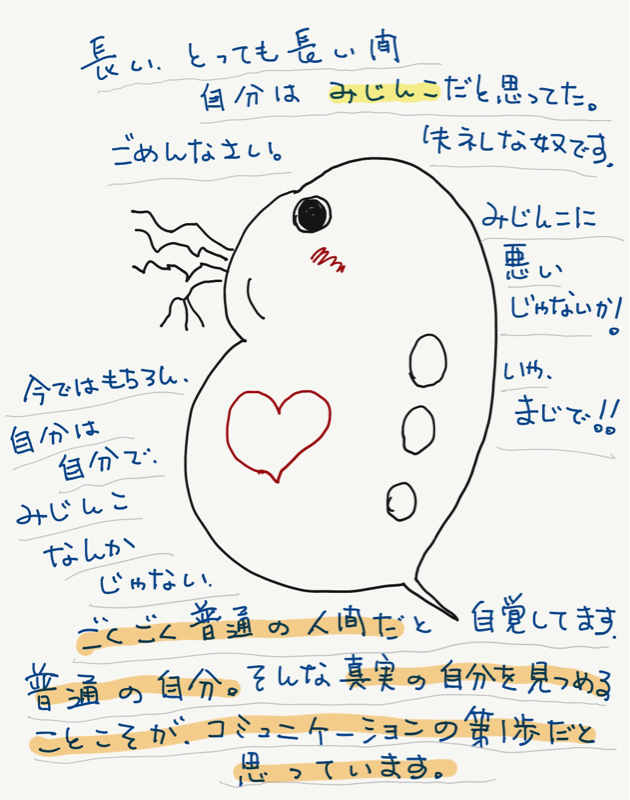 長い、とっても長い間
自分は みじんこだと思ってた。
ごめんなさい。
失礼な奴です。
みじんこに
悪い
じゃないか!
いや、
まじで!!
今ではもちろん、
自分は
自分で、
みじんこ
なんか
じゃない、
ごくごく普通の人間だと 自覚してます。
普通の自分。そんな真実の自分を見つめる
ことこそが、コミュニケーションの第1歩だと
思っています。